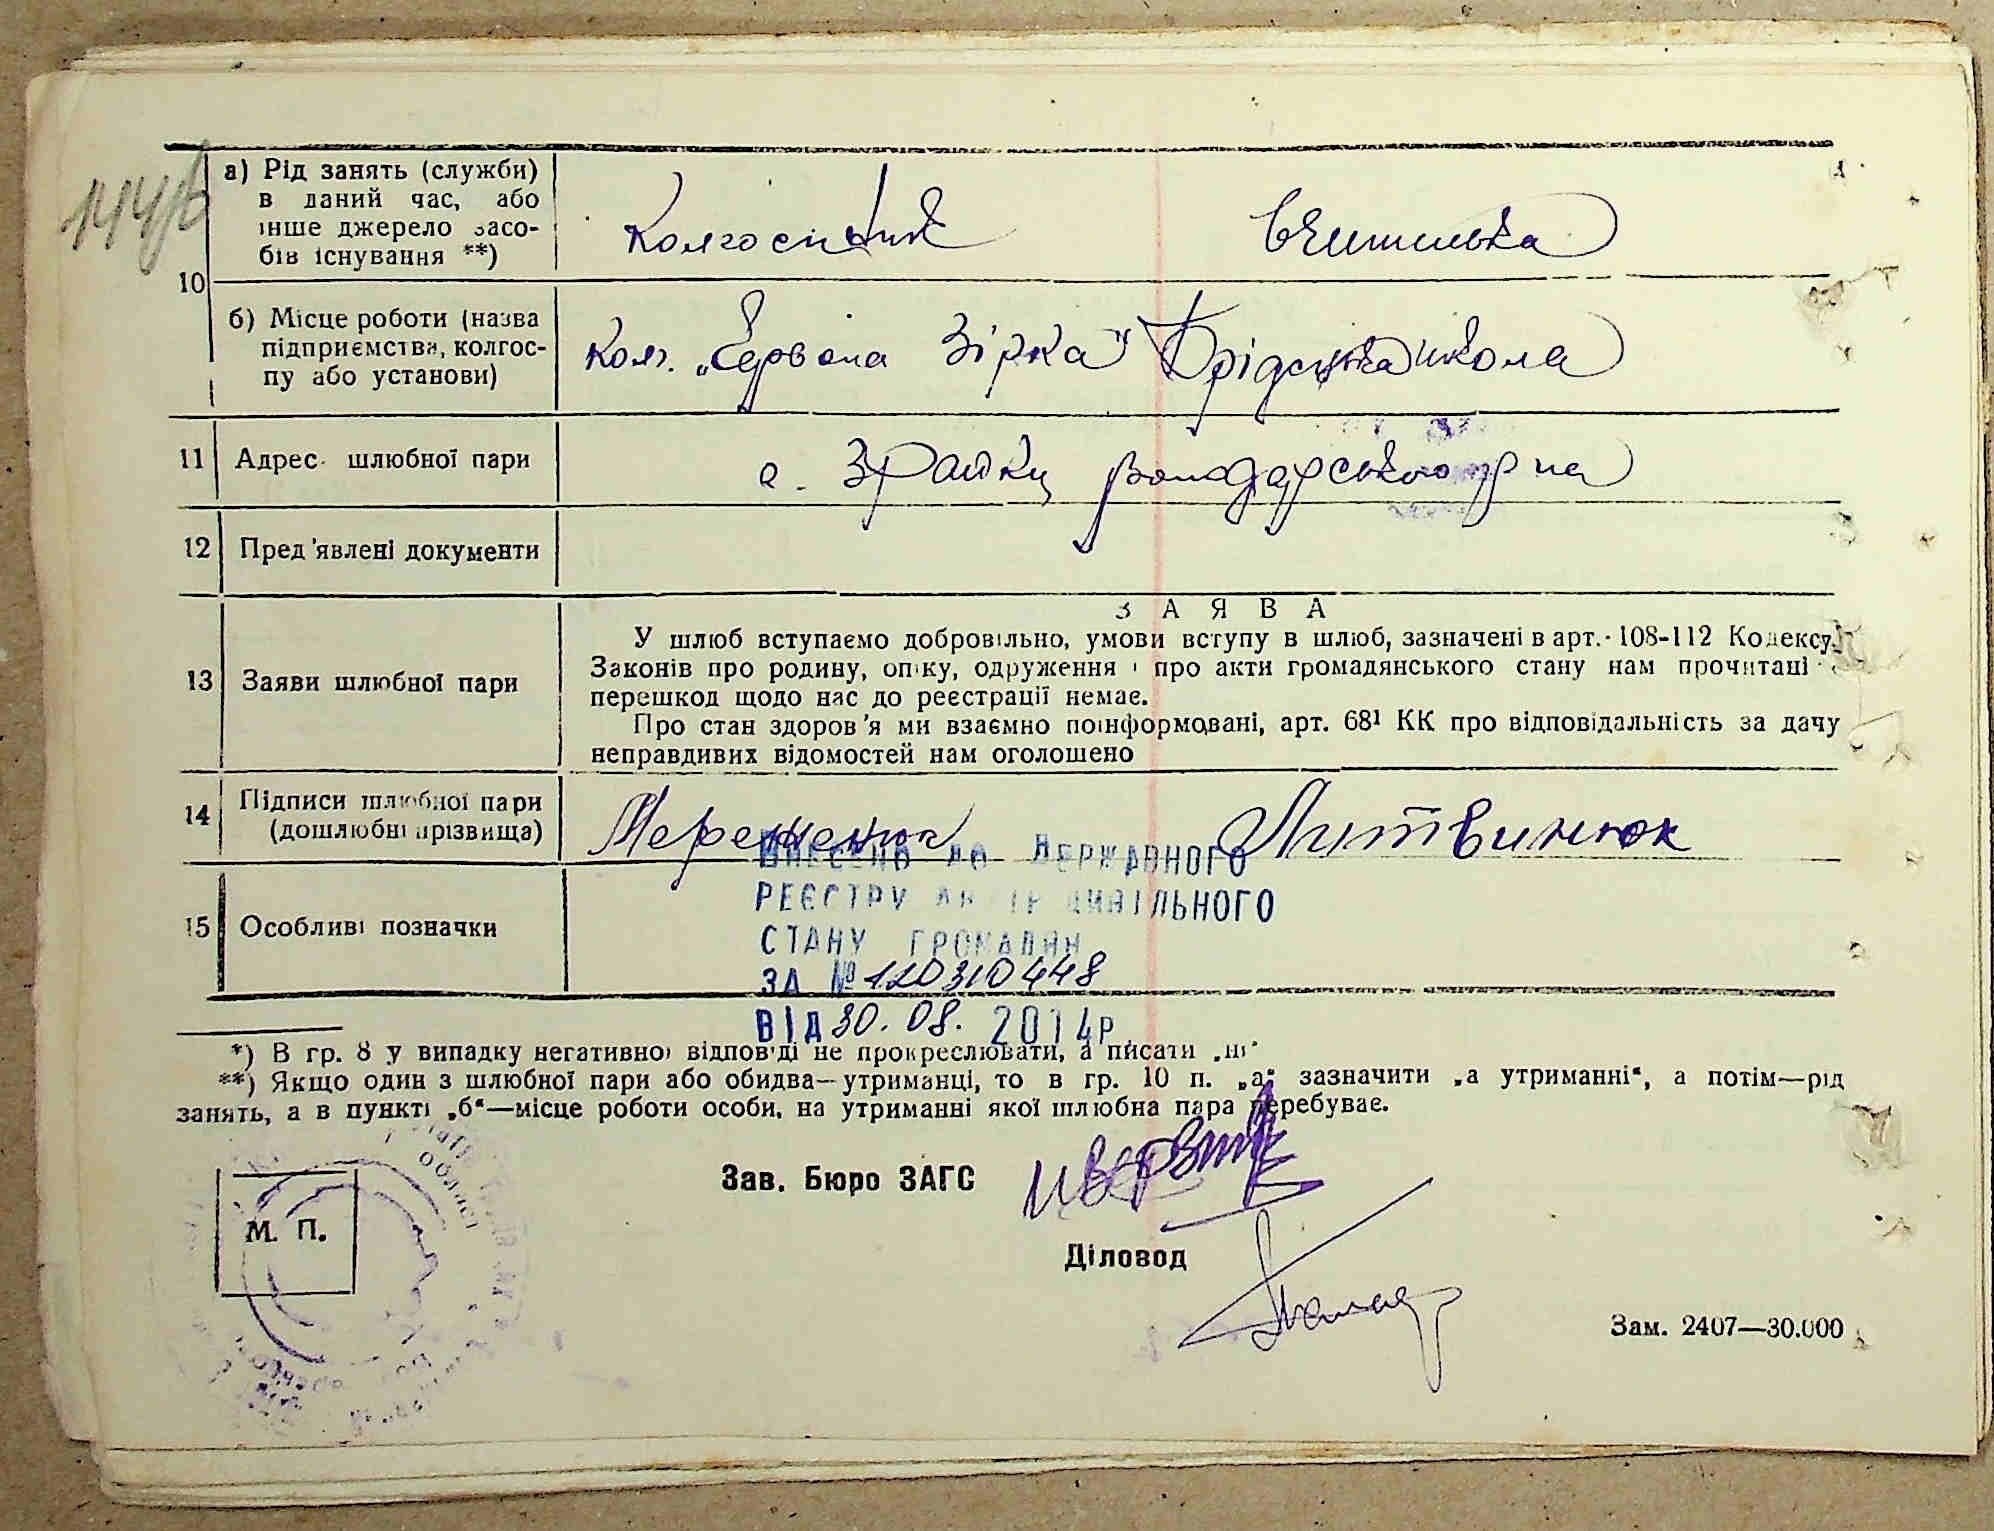 144б
10
а) Рід занять (служби)
в даний час, або
інше джерело засо-
бів існування **)
Колгоспник
Вчителька
б) Місце роботи (назва
підприємства, колгос-
пу або установи)
Колг. „Червона Зірка"
школа
11 Адрес шлюбної пари
с. Зрайки Володарського р-на
12 Пред'явлені документи
13 Заяви шлюбної пари
ЗАЯВА
У шлюб вступаємо добровільно, умови вступу в шлюб, зазначені в арт. 108-112 Кодексу
Законів про родину, опіку, одруження і про акти громадянського стану нам прочитані
перешкод щодо нас до реєстрації немає.
Про стан здоров'я ми взаємно поінформовані, арт. 68¹ КК про відповідальність за дачу
неправдивих відомостей нам оголошено
14 Підписи шлюбної пари
(дошлюбні прізвища)
Литвинюк
ВНЕСЕНО ДО ДЕРЖАВНОГО
РЕЄСТРУ АКТІВ ЦИВІЛЬНОГО
СТАНУ ГРОМАДЯН
ЗА № 120310448
ВІД 30. 08. 2014р.
15 Особливі позначки
*) В гр. 8 у випадку негативної відповіді не прокреслювати, а писати „ні"
**) Якщо один з шлюбної пари або обидва—утриманці, то в гр. 10 п. „а" зазначити „а утриманні", а потім—рід
занять, а в пункті „б"—місце роботи особи, на утриманні якої шлюбна пара перебуває.
М. П.
Зав. Бюро ЗАГС
Діловод
Зам. 2407—30.000